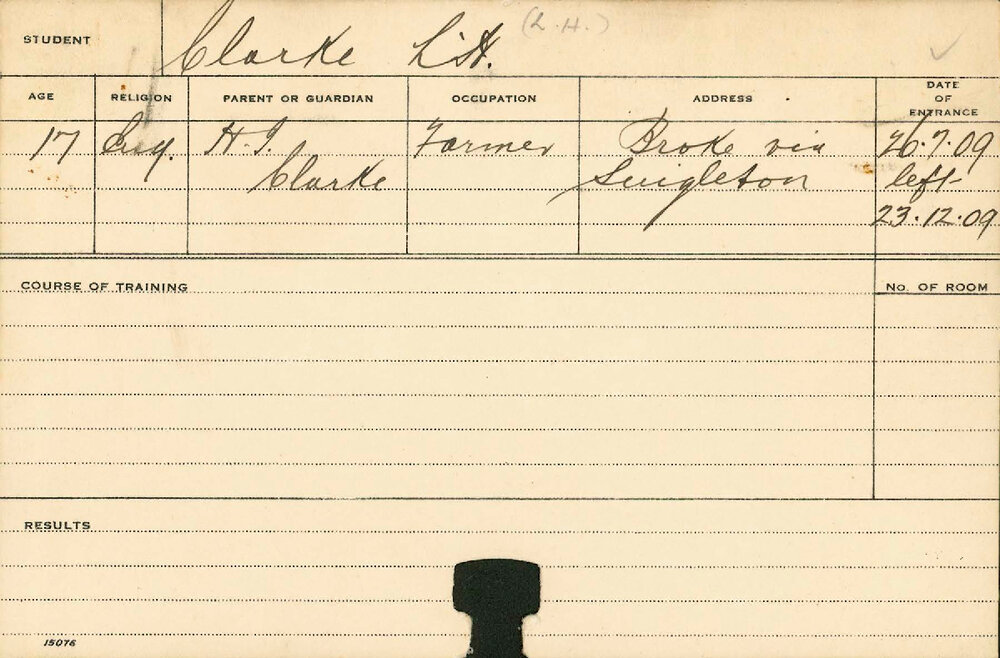 STUDENT Clarke L.H. (L.H.)
AGE RELIGION PARENT OR GUARDIAN OCCUPATION ADDRESS DATE OF ENTRANCE
17 Eng. H. I. Farmer Broke via 26.7.09
Clarke Singleton left
23.12.09
COURSE OF TRAINING No. OF ROOM
RESULTS
15076